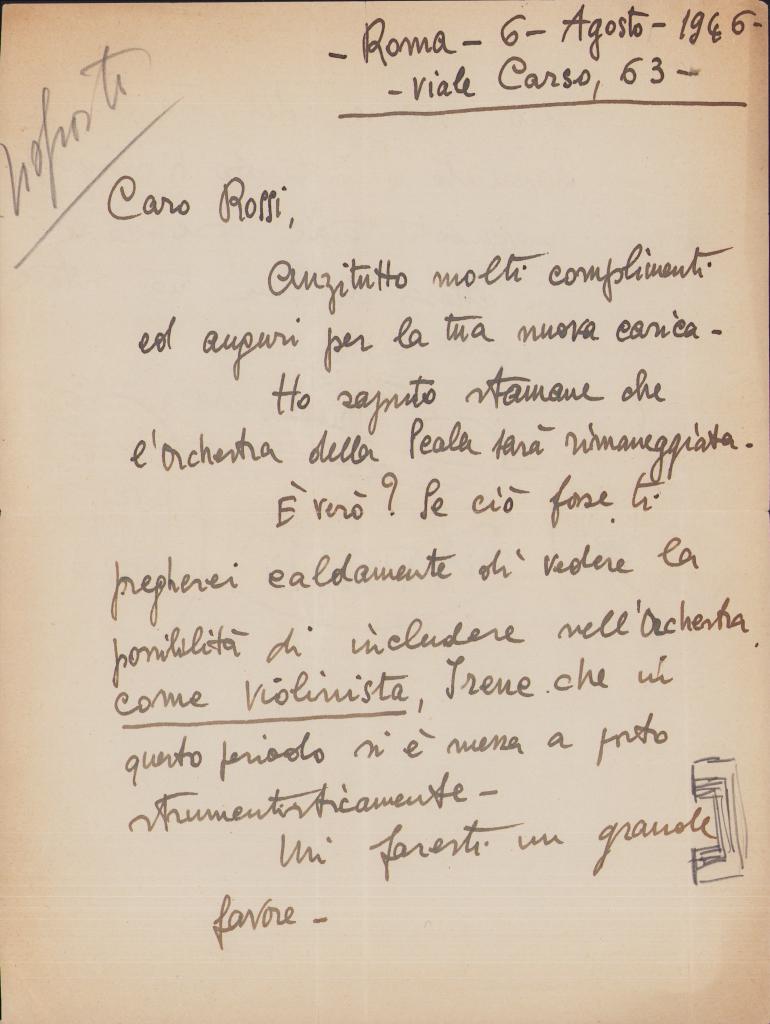 - Roma - 6 - Agosto - 1946 -
- Viale Carso, 63 -
risposto
Caro Rossi,
Anzitutto molti complimenti
ed auguri per la tua nuova carica -
Ho saputo stamane che
l'Orchestra della Scala sarà rimaneggiata -
È verò? Se ciò fosse ti
pregherei caldamente di vedere la
possibilità di includere nell'Orchestra,
come violinista, Irene che in
questo periodo si è messa a posto
strumentisticamente -
Mi faresti un grande
favore -